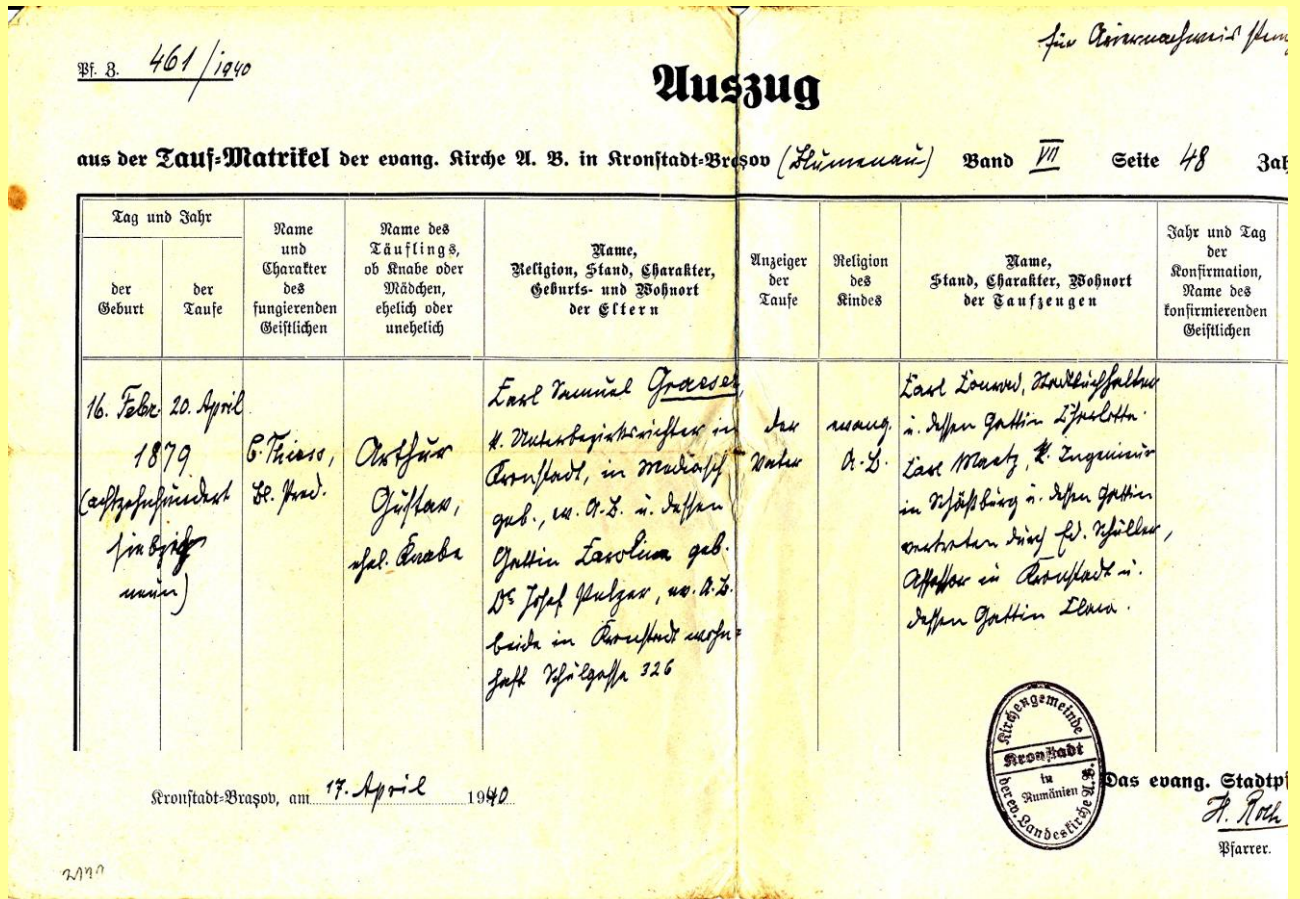 für Ariernachweis
Pf. Z. 461/1940
Auszug
aus der Tauf-Matrikel der evang. Kirche A. B. in Kronstadt-Brașov (Blumenau) Band VII Seite 48
Tag und Jahr
der Geburt
der Taufe
Name
und
Charakter
des
fungierenden
Geistlichen
Name des
Täuflings,
ob Knabe oder
Mädchen,
ehelich oder
unehelich
Name,
Religion, Stand, Charakter,
Geburts- und Wohnort
der Eltern
Anzeiger
der
Taufe
Religion
des
Kindes
Name,
Stand, Charakter, Wohnort
der Taufzeugen
Jahr und Tag
der
Konfirmation,
Name des
konfirmierenden
Geistlichen
16. Febr. 20. April
1879
(achtzehnhundert
siebzig
neun)
Bl. Pred.
Arthur
Gustav,
ehel. Knabe
Carl Samuel Graeser,
k. Unterbezirksrichter in
Kronstadt, in Mediasch
geb., ev. A.B. u. dessen
Gattin Carolina geb.
Dr. Josef, ev. A.B.
beide in Kronstadt wohn-
haft Schulgasse 326
der
Vater
evang.
A.B.
Carl Conrad, Stadtbuchhalter
u. dessen Gattin Charlotte.
Carl Maetz, k. Ingenieur
in Schäßburg u. dessen Gattin
vertreten durch Ed. Schuller,
Assessor in Kronstadt u.
dessen Gattin Clara.
Kirchengemeinde
Kronstadt
in
Rumänien
der ev. Landeskirche A.B.
Kronstadt-Brașov, am 17. April 1940
Das evang.
H. Roth
Pfarrer.